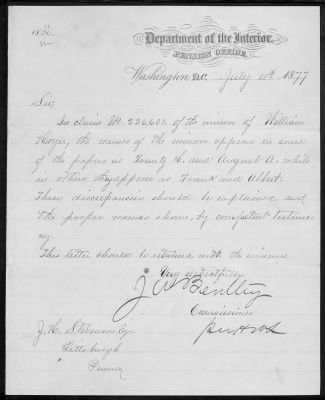 Department of the Interior,
PENSION OFFICE,
Washington, D.C. July 11th 1877
Sir,
In claim No. 226,621, of the minor of William
the names of the minors appear in some
of the papers as Frantz K. and August A. while
in others they appear as Frank and Albert.
These discrepancies should be explained, and
the proper names shown, by competent testimo
ny.
This letter should be returned with the
Very respectfully
J A Bentley
Commissioner
J. H. Stevenson Esq
Pittsburgh
Penna